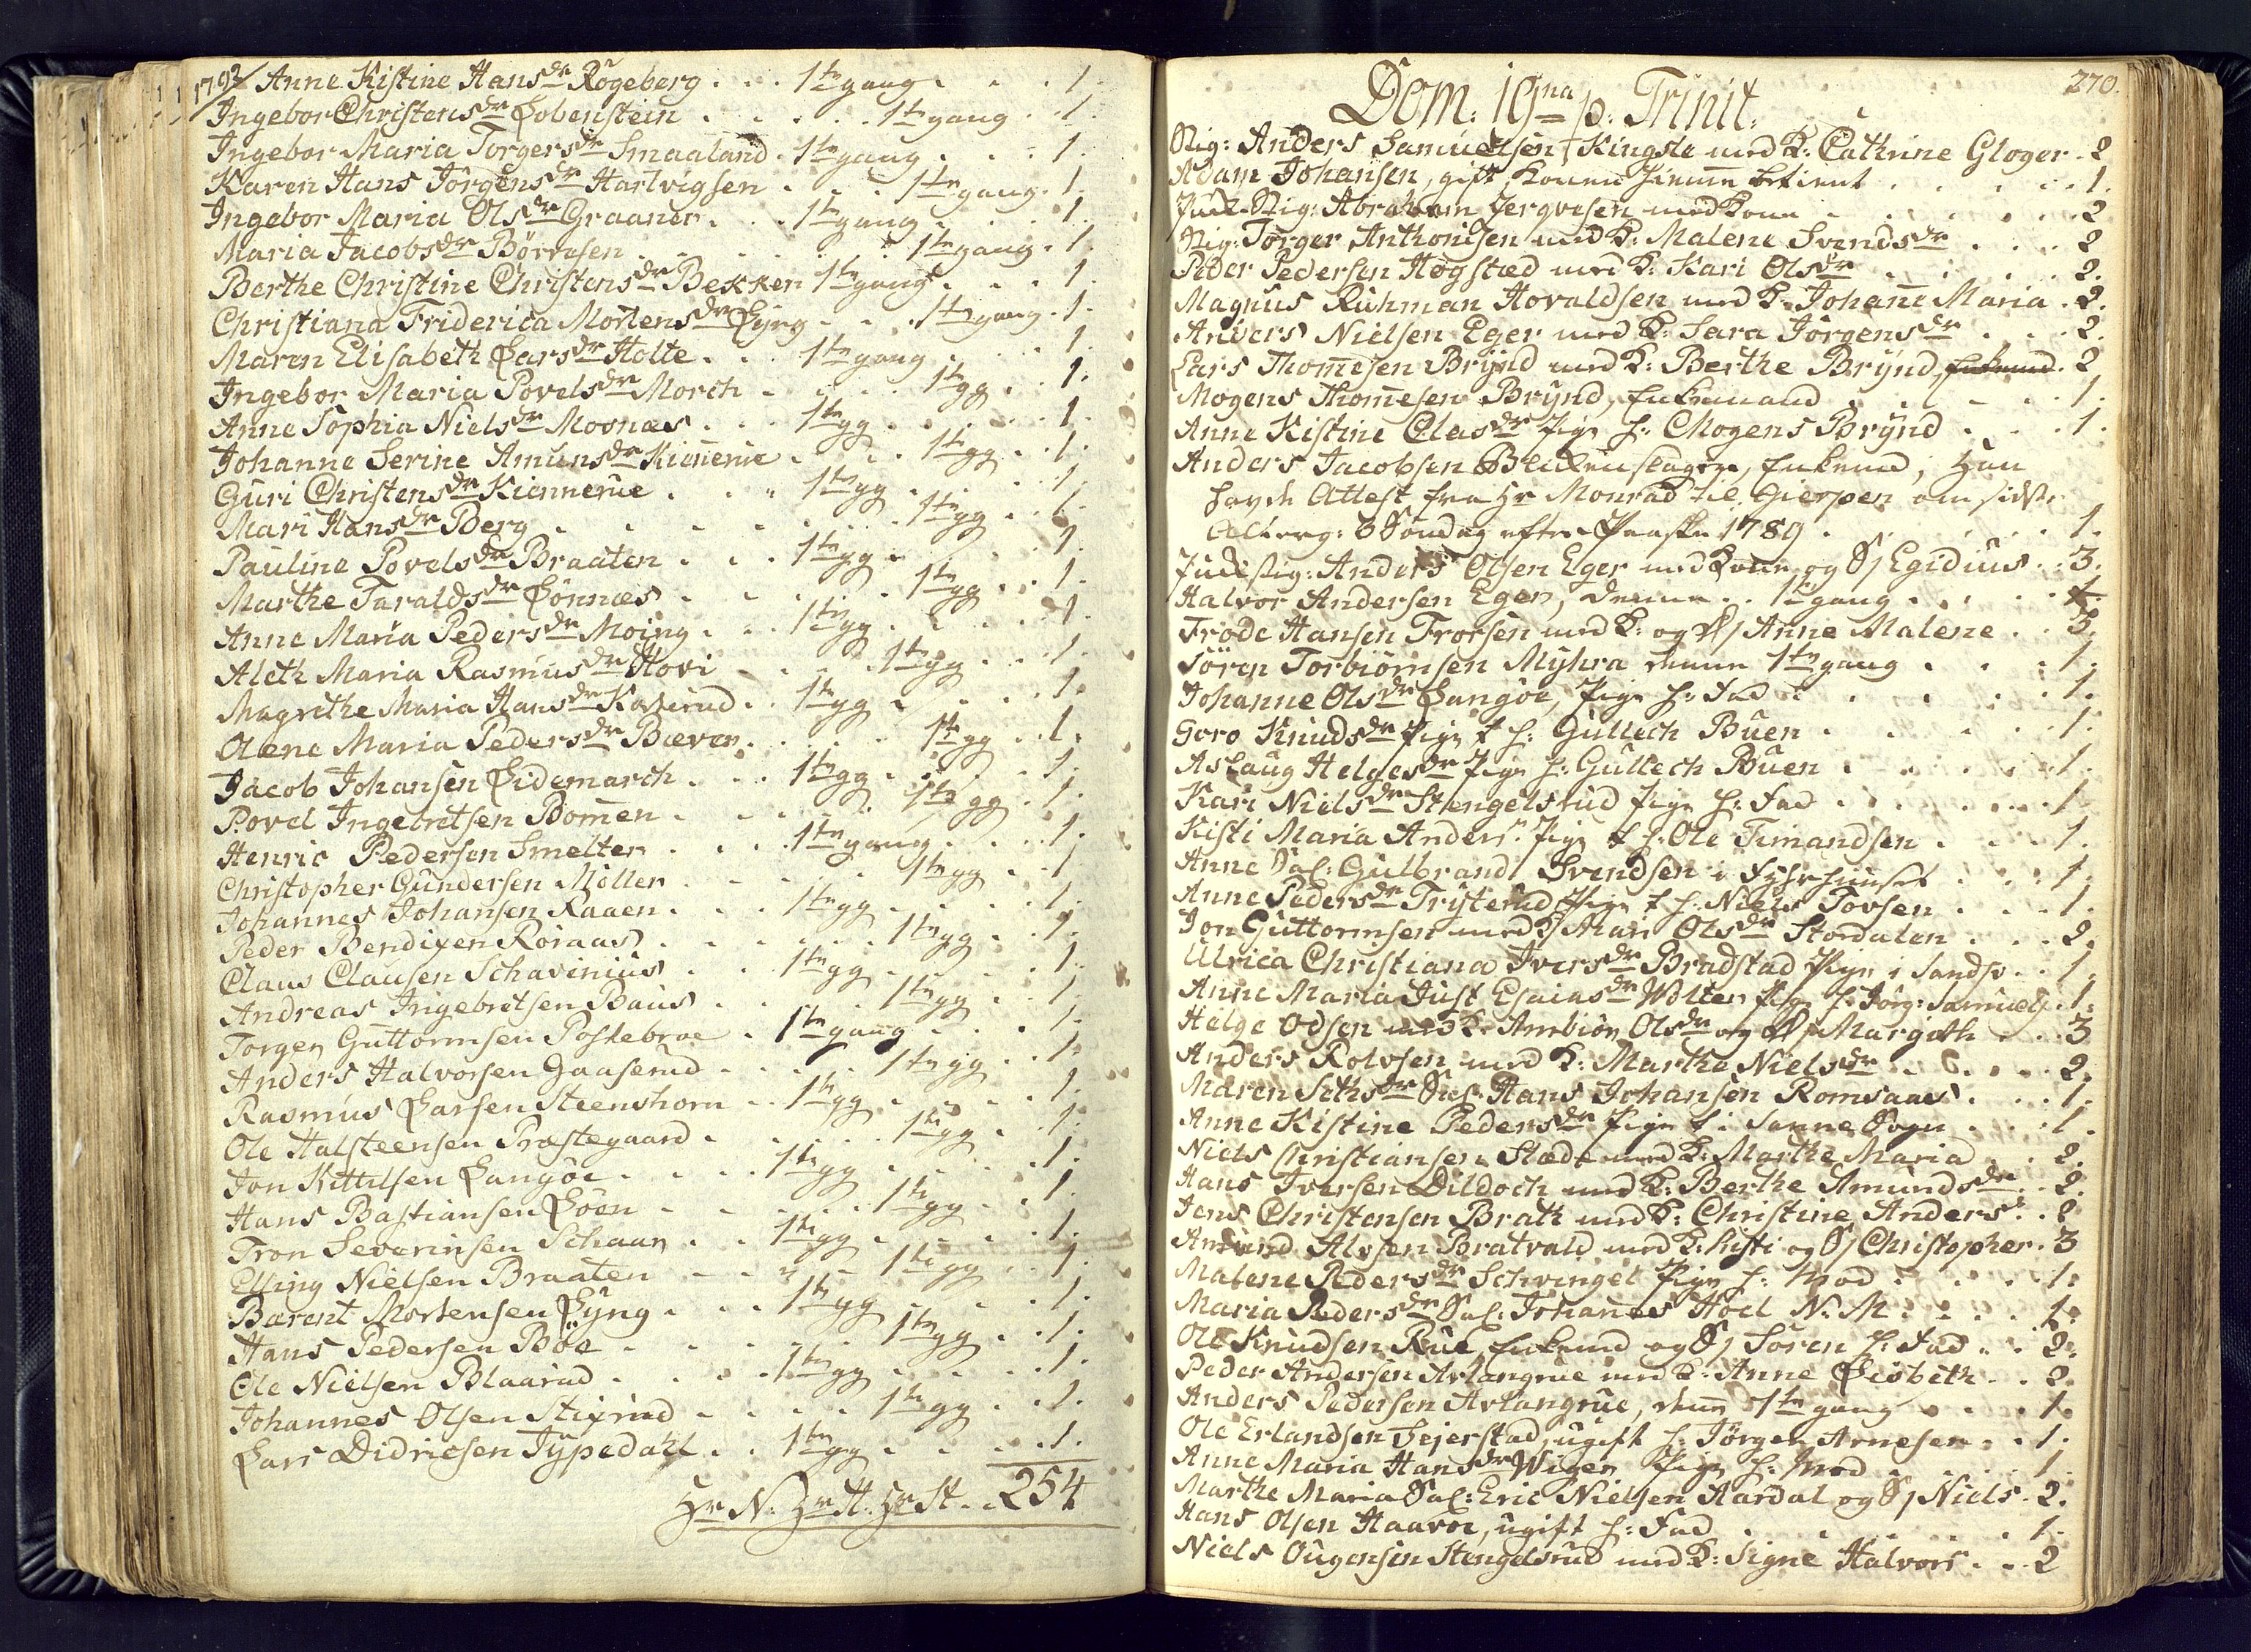 1793/ Anne Kistine Hansdr Rögeberg . . . 1te gang . . . 1.
Ingebor Christensdr Lobenstein . . . . . 1te gang . . 1.
Ingebor Maria Torgersdr Smaaland . 1te gang . . . 1.
Karen Hans Jörgensdr Hartvigsen . . . 1te gang . 1.
Ingebor Maria Olsdr Graaner . . . 1te gang . . . 1.
Maria Jacobsdr Börresen . . . . . 1te gang . 1.
Berthe Christine Christensdr Bekken 1te gang . . . 1
Christiana Friderica Mortensdr Lyng . . . 1te gang . 1.
Maren Elisabeth Larsdr Holte . . . 1te gang . . . 1.
Ingebor Maria Povelsdr Morch . . . . 1te gg . . 1.
Anne Sophia Nielsdr Moonæs . . . 1te gg . . . . 1.
Johanne Serine Amunsdr Kiennerue . . . 1te gg . . 1.
Guri Christensdr Kiennerue . . . 1te gg . . . 1.
Mari Hansdr Berg . . . . . . 1te gg . . 1.
Pauline Povelsdr Braaten . . . 1te gg . . . 1.
Marthe Taraldsdr Lönnæs . . . . 1te gg . . 1.
Anne Maria Pedersdr Moing . . . 1te gg . . . . 1.
Aleth Maria Rasmusdr Hovi . . . . 1te gg . . 1.
Magrethe Maria Hansdr Kaserud . . 1te gg . . . 1.
Olene Maria Pedersdr Bæver . . . . 1te gg . . 1.
Jacob Johansen Eidemarch . . . 1te gg . . . . 1.
Povel Ingebretsen Bommen . . . . 1te gg . 1.
Henric Pedersen Smelter . . . 1te gang . . . 1.
Christopher Gundersen Möller . . . . 1te gg . . 1
Johannes Johansen Raaen . . . 1te gg . . . 1.
Peder Bendixen Röraas . . . . . 1te gg . . 1.
Claus Clausen Schavenius . . . 1te gg . . . 1.
Andreas Ingebretsen Baus . . . . 1te gg . . 1.
Torger Guttormsen Poskebroe . 1te gang . . . 1.
Anders Halvorsen Gaaserud . . . . 1te gg . . 1.
Rasmus Larsen Steenshorn . . 1te gg . . . . 1.
Ole Halsteensen Præstegaard . . . . 1te gg . . 1.
Jon Kittelsen Langöe . . . . 1te gg . . . . 1.
Hans Bastiansen Löen . . . . . 1te gg . . . 1
Tron Severinsen Schaan . . . 1te gg . . . . 1.
Elling Nielsen Braaten . . . . 1te gg . . 1.
Barent Mortensen Lyng . . . 1te gg . . . . 1.
Hans Pedersen Böe . . . . . 1te gg . . 1.
Ole Nielsen Blaarud . . . . 1te gg . . . . 1.
Johannes Olsen Stixrud . . . . 1te gg . . 1.
Lars Didricsen Typedahl . . 1te gg . . . . 1.
Hr N: Hr H: Hr St . . 254
270.
Dom: 19na p. Trinit:
Stig: Anders Samuelsen Kingsle med K: Cathrine Gloger . 2
Adam Johansen, gift, Konen hiemme betient . . . . . 1.
Abraham Jergvesen med Kone . . . . . 2
Stig: Torger Anthonisen med K: Malene Svendsdr . . . 2
Peder Pedersen Högstæd med K: Kari Olsdr . . . . 2.
Magnus Ruhman Hovaldsen med K: Johane Maria . 2.
Anders Nielsen Eger med K: Sara Jörgensdr . . . 2.
Lars Thomesen Brynd med K: Berthe Brynd, . 2
Mogens Thomesen Brynd, Enkemand . . . . 1.
Anne Kistine Olasdr Pige h: Mogens Brynd . . . 1.
Anders Jacobsen Blikenslager, Enkemd, han
havde Attest fra Hr Monrad til Gierpen om sidste
Alterg: 3 Söndag efter Paaske 1789 . . . . . 1.
Anders Olsen Eger med Kone og S/ Egidius . . 3.
Halvor Andersen Eger, denne . . 1te gang . . . . 1.
Frode Hansen Frorsen med K: og D/ Anne Malene . . 3.
Sören Torbiörnsen Myhra denne 1te gang . . . 1.
Johanne Olsdr Langöe, Pige h: Fad . . . . 1.
Goro Knudsdr Pige t h: Gullech Buen . . . . 1.
Aslaug Helgesdr Pige h: Gullech Buen . . . . 1.
Kari Nielsdr Stengelsrud Pige h: Fad . . . . . 1.
Kisti Maria Anders: Pige t h: Ole Timandsen . . . 1.
Anne Sal: Gulbrand Svendsen i Fyhrhuuset . . . 1.
Anne Pedersdr Trytterud Pige t h: Niels Tovsen . . . 1.
Jon Guttormsen med K/ Mari Olsdr Stordalen . . . 2.
Ulrica Christiana Iversdr Bradstad Pige i Sandsv . . 1.
Anne Maria Just Esaiasdr Wolter Pige h: Jörg: Samuels. 1.
Helge Odsen med K: Anbiör Olsdr og D/ Margith . . 3
Anders Rolvsen med K: Marthe Nielsdr . . . . 2.
Maren Sethsdr Sal: Hans Johansen Romsaas . . . 1.
Anne Kistine Pedersdr Pige t i Sanne Sogn . . . 1.
Niels Christiansen Slæde med K: Marthe Maria . . 2.
Hans Iversen Dildoch med K: Berthe Amundsdr . . 2.
Jens Christensen Brath med K: Christine Anders: . . 2
Amund Alvsen Bratvald med K: Kisti og S/ Christopher . 3
Malene Pedersdr Schvingel Pige h: Mod . . . . 1.
Maria Pedersdr Sal: Johanes Höel N: M . . . . 1.
Ole Knudsen Rue, Enkemd og S/ Sören h: Fad . . 2.
Peder Andersen Arlangrue med K: Anne Lisbeth . . 2.
Anders Pedersen Arlangrue, denn 1te gang . . . 1.
Ole Erlandsen Sejerstad, ugift h: Jörgen Arnesen . . 1.
Anne Maria Hansdr Wiger Pige h: Mod . . . . 1.
Marthe Maria Sal: Eric Nielsen Aardal og S/ Niels . 2.
Hans Olsen Haavoe, ugift h: Fad . . . . . 1.
Niels Ougensen Stengelsrud med K: Signe Halvors . . 2